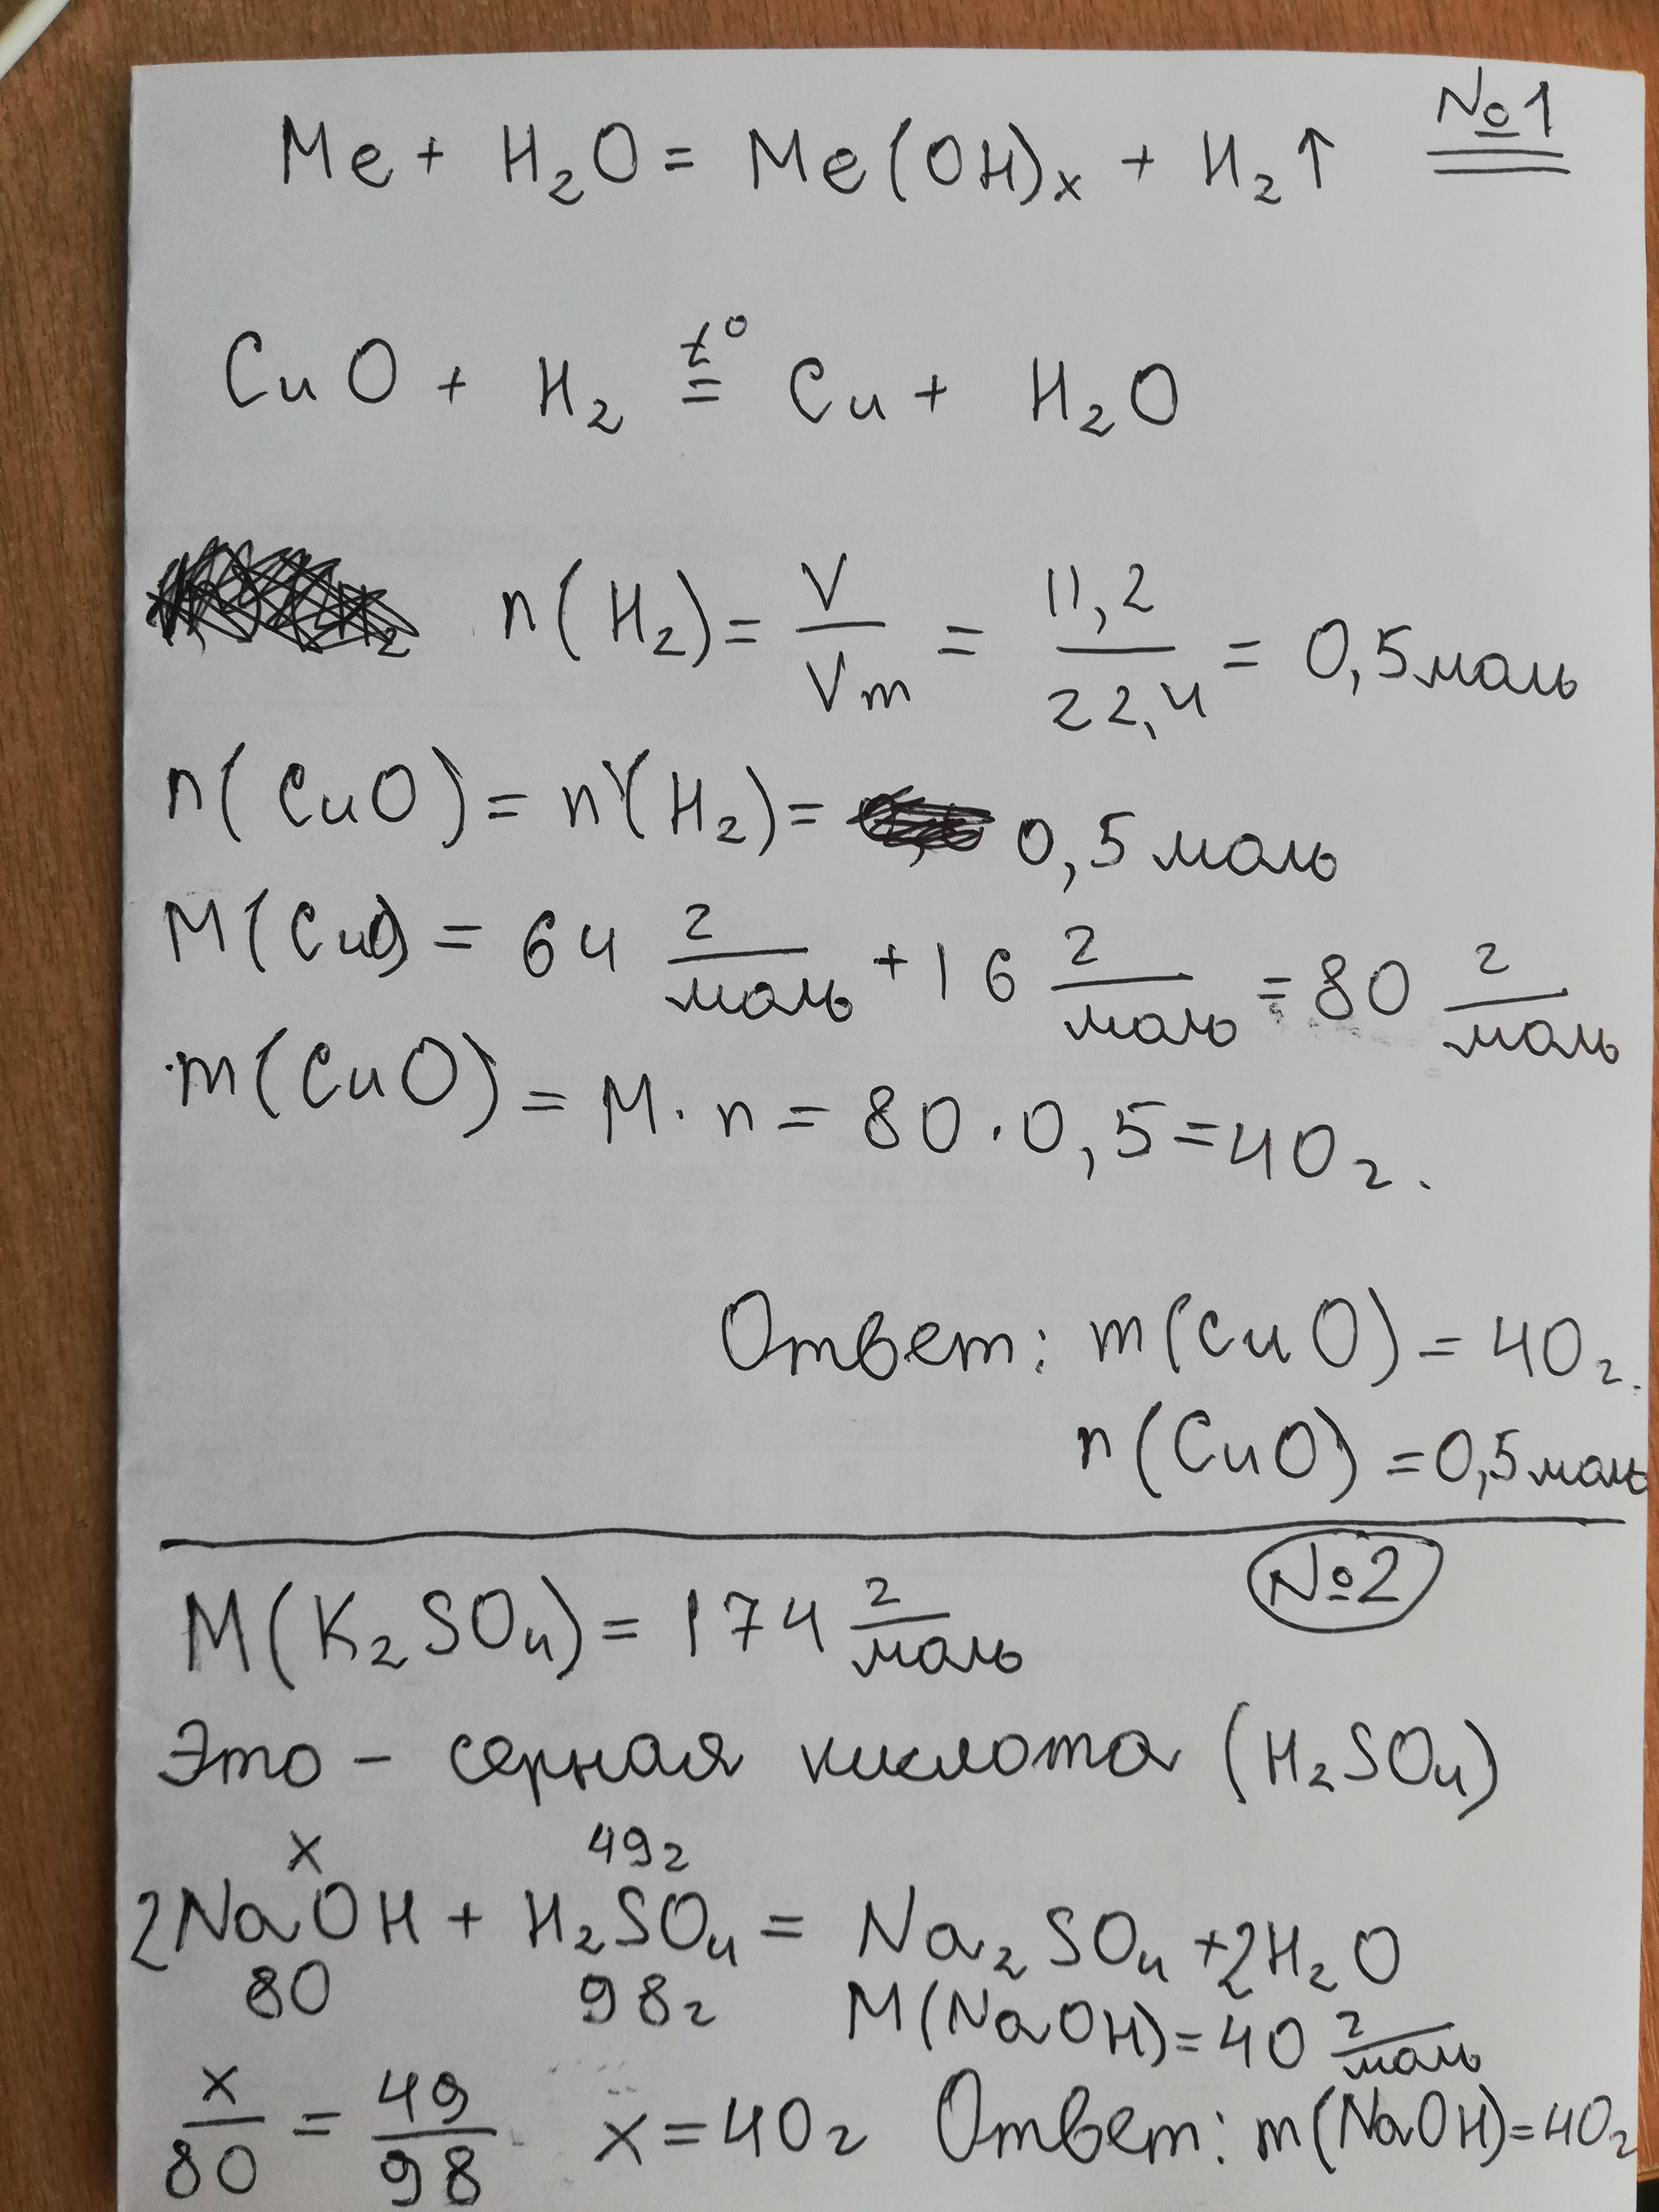 №1
Me + H₂O = Me(OH)ₓ + H₂↑
CuO + H₂ =^t° Cu + H₂O
n(H₂) = V/Vm = 11,2/22,4 = 0,5 моль
n(CuO) = n(H₂) = 0,5 моль
M(CuO) = 64 г/моль + 16 г/моль = 80 г/моль
m(CuO) = M · n = 80 · 0,5 = 40 г.
Ответ: m(CuO) = 40 г.
n(CuO) = 0,5 моль
№2
M(K₂SO₄) = 174 г/моль
Это - серная кислота (H₂SO₄)
x 49 г
2NaOH + H₂SO₄ = Na₂SO₄ + 2H₂O
80 98 г M(NaOH) = 40 г/моль
x/80 = 49/98 x = 40 г Ответ: m(NaOH) = 40 г